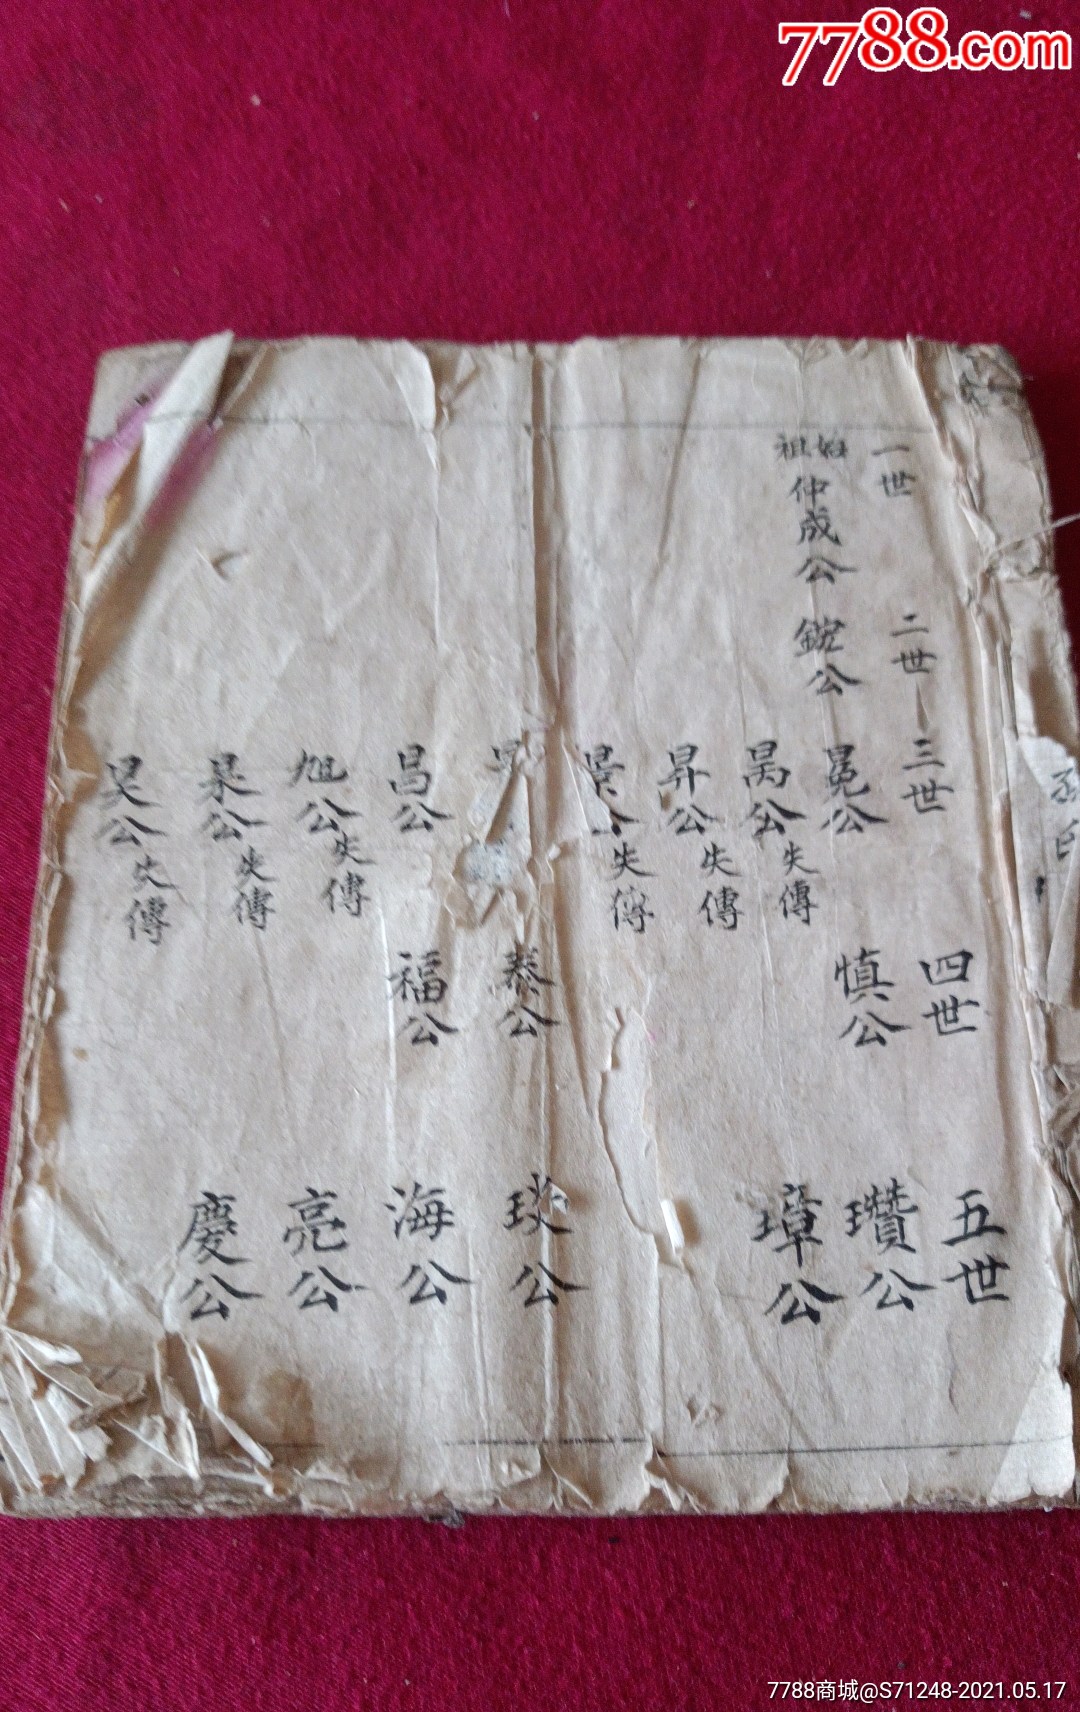 7788.com
一世
始祖
仲成公
二世
公
三世
冕公
昺公 失傳
昇公 失傳
景公 失傳
昌公
旭公 失傳
杲公 失傳
昊公 失傳
四世
慎公
泰公
福公
五世
瓚公
璋公
玫公
海公
亮公
慶公
7788商城@S71248-2021.05.17